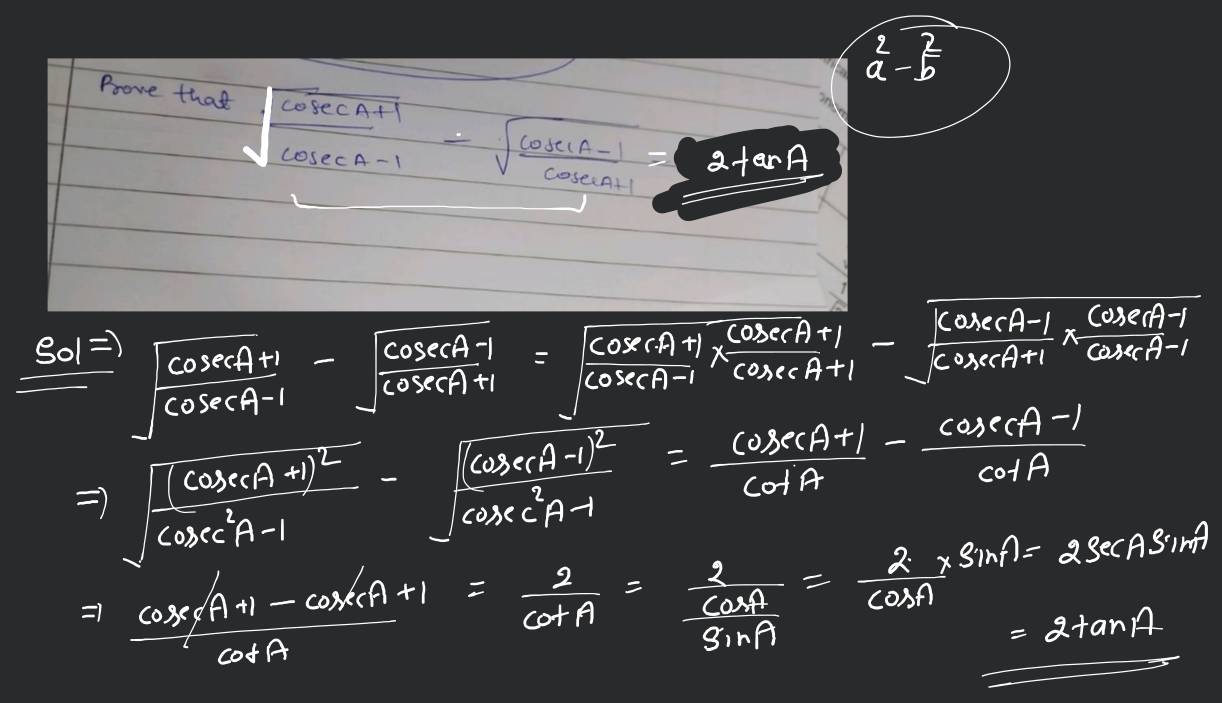 a² - b²
Prove that √((cosecA+1)/(cosecA-1)) - √((cosecA-1)/(cosecA+1)) = 2tanA
Sol ⇒ √((cosecA+1)/(cosecA-1)) - √((cosecA-1)/(cosecA+1)) = √((cosecA+1)/(cosecA-1) × (cosecA+1)/(cosecA+1)) - √((cosecA-1)/(cosecA+1) × (cosecA-1)/(cosecA-1))
⇒ √((cosecA+1)²/(cosec²A-1)) - √((cosecA-1)²/(cosec²A-1)) = (cosecA+1)/cotA - (cosecA-1)/cotA
⇒ (cosecA+1-cosecA+1)/cotA = 2/cotA = 2/(cosA/sinA) = 2/cosA × sinA = 2secAsinA
= 2tanA